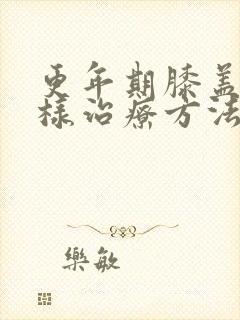 更年期膝盖
様治療方法
樂敏